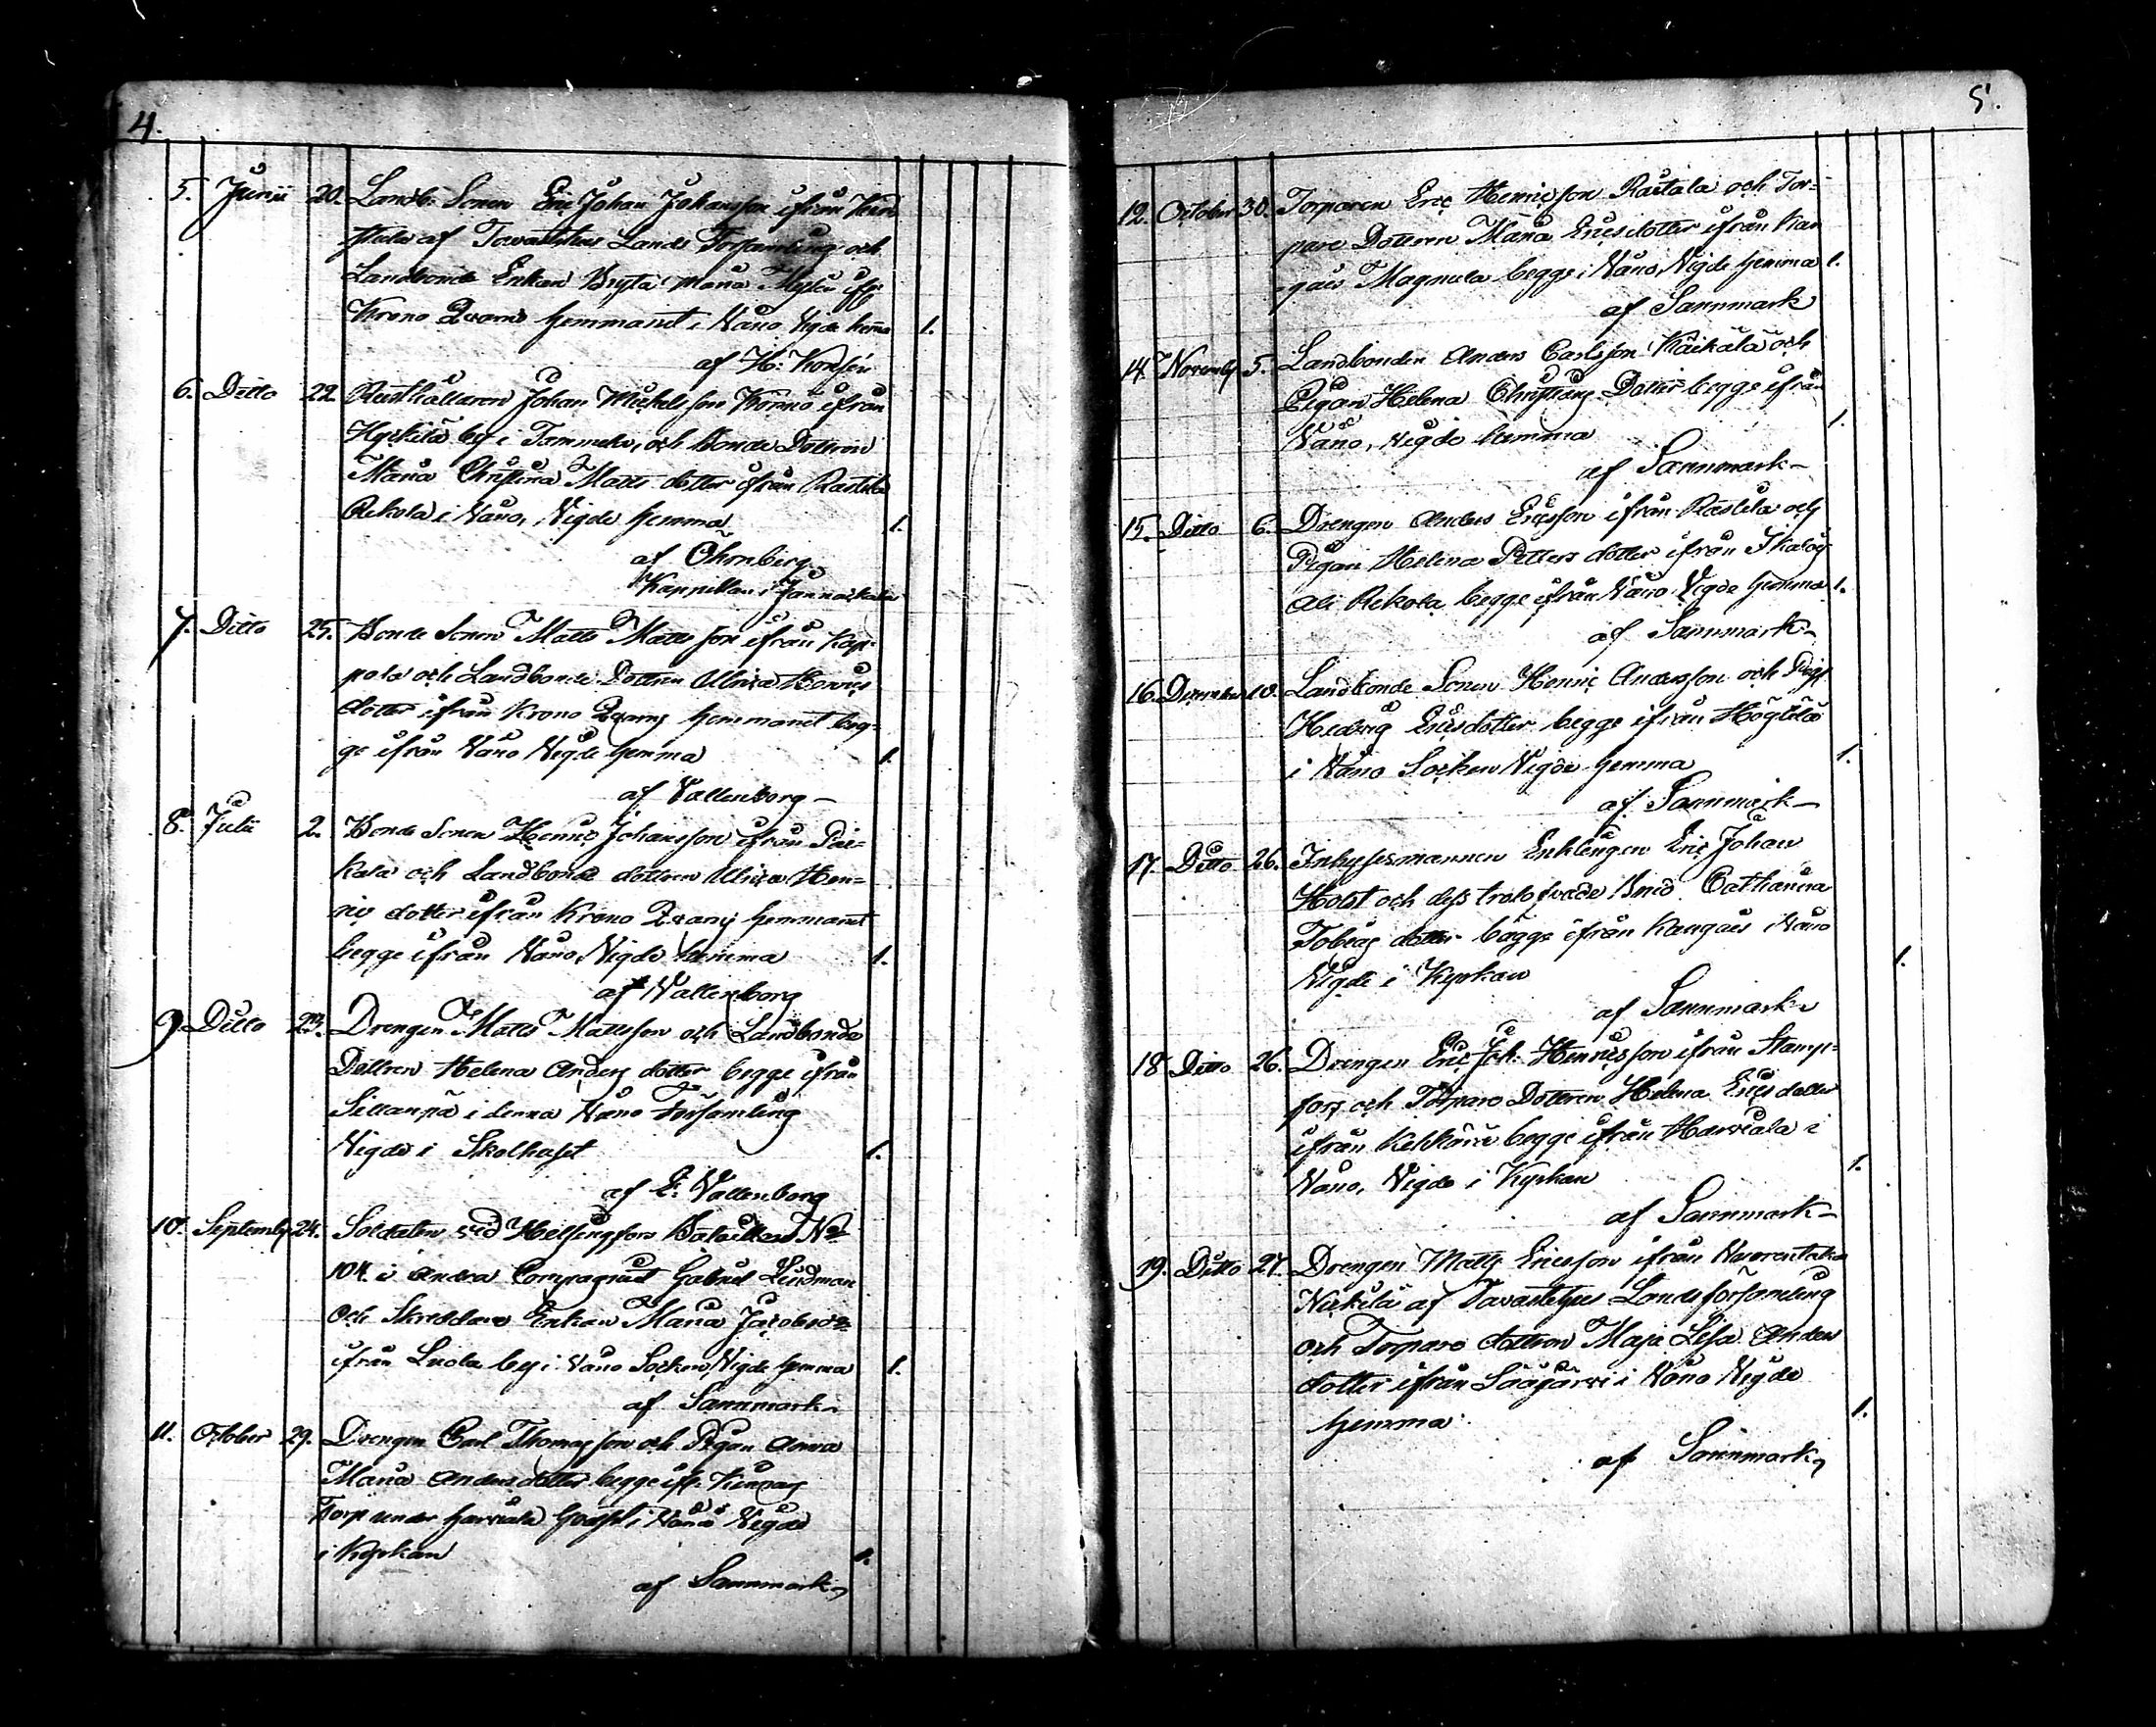 4.
5. Junii 20. Landb: Sonen Eric Johan Johansson ifrån
af Tavastehus Lands Församling och
Landbonde Enkan Bryta Maria ifr
Krono Qvarns Hemmanet i Wånå Vigde hemma 1.
af H:
6. Ditto 22. Rusthållaren Johan Mickelsson ifrån
by i Tammela, och Bonde Dottren
Maria Christina Matts dotter ifrån Rastila
Rekola i Wånå, Vigde hemma 1.
af Öhrnberg
Kappellan i Jannackala
7. Ditto 25. Bonde Sonen Matts Mattsson ifrån Kap-
pola och Landbonde Dottren Ulrica Henrics
dotter ifrån Krono Qvarns hemmanet beg-
ge ifrån Wånå Vigde hemma 1.
af Vallenborg
8. Julii 2. Bonde Sonen Henric Johansson ifrån Pai-
kala och Landbonde dottren Ulrica Hen-
rics dotter ifrån Krono Qvarns hemmanet
begge ifrån Wånå, Vigde hemma 1.
af Wallenborg
9. Ditto 23. Drengen Matts Mattsson och Landbonde
Dottren Helena Anders dotter begge ifrån
Sillanpä i denna Wånå Församling
Vigde i Skolhuset 1.
af E: Vallenborg
10. Septemb 24. Soldaten vid Helsingfors Bataillon No
104 i andra Compagniet Gabriel Lindman
och Skreddare Enkan Maria Jacobsdr
ifrån Luola by i Wånå Socken, Vigde hemma 1.
af Sannmark
11. October 29. Drengen Carl Thomasson och Pigan Anna
Maria Andersdotter begge ifr:
Torp under Harviala Gods i Wånå Vigde
i Kyrkan 1.
af Sannmark
5.
12. October 30. Torparen Eric Henricsson Rastala och Tor-
pare Dottren Maria Ericsdotter ifrån Kan
gais Magnula begge i Wånå, Vigde hemma 1.
af Sannmark
14. Novemb 5. Landbonden Anders Carlsson Käikälä och
Pigan Helena Christians Dotter begge ifrån
Wånå, Vigde hemma 1.
af Sannmark
15. Ditto 6. Drengen Anders Ericsson ifrån Rastila och
Pigan Helena Petters dotter ifrån
Ali Rekola begge ifrån Wånå Vigde hemma 1.
af Sannmark
16. December 10. Landbonde Sonen Henric Andersson och Pig
Hedvig Ericsdotter begge ifrån Högtilä
i Wånå Socken Vigde hemma 1.
af Sannmark
17. Ditto 26. Inhysesmannen Enklingen Eric Johan
Holst och dess trolofvade Brud Catharina
Tobias dotter bägge ifrån Kangais i Wånå
Vigde i Kyrkan 1.
af Sannmark
18. Ditto 26. Drengen Eric Joh: Henricsson ifrån Stamp-
fors och Torpare Dottren Helena Erics dotter
ifrån begge ifrån Harviala i
Wånå, Vigde i Kyrkan 1.
af Sannmark
19. Ditto 27. Drengen Matts Ericsson ifrån Vuorentaka
Nickilä af Tavastehus Landsförsamling
och Torpare dottren Maja Lisa Anders
dotter ifrån Sääjärvi i Wånå Vigde
hemma 1.
af Sannmark